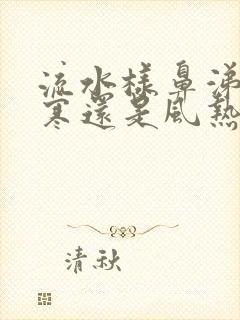 流水樣鼻涕
寒還是風熱
清秋